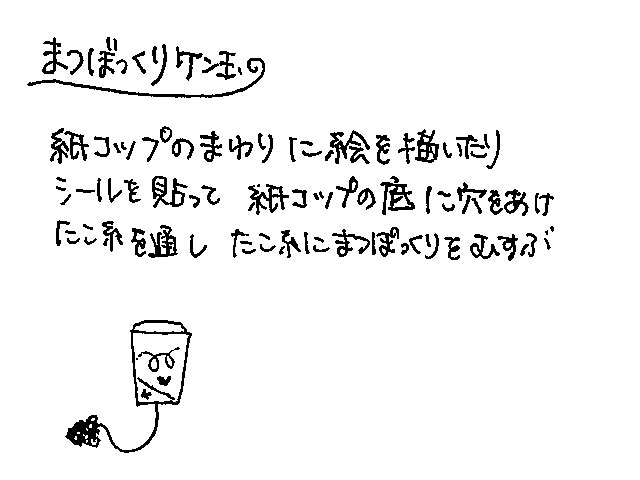 まつぼっくりケン玉の
紙コップのまわりに絵を描いたり
シールを貼って 紙コップの底に穴をあけ
たこ糸を通し たこ糸にまつぼっくりをむすぶ